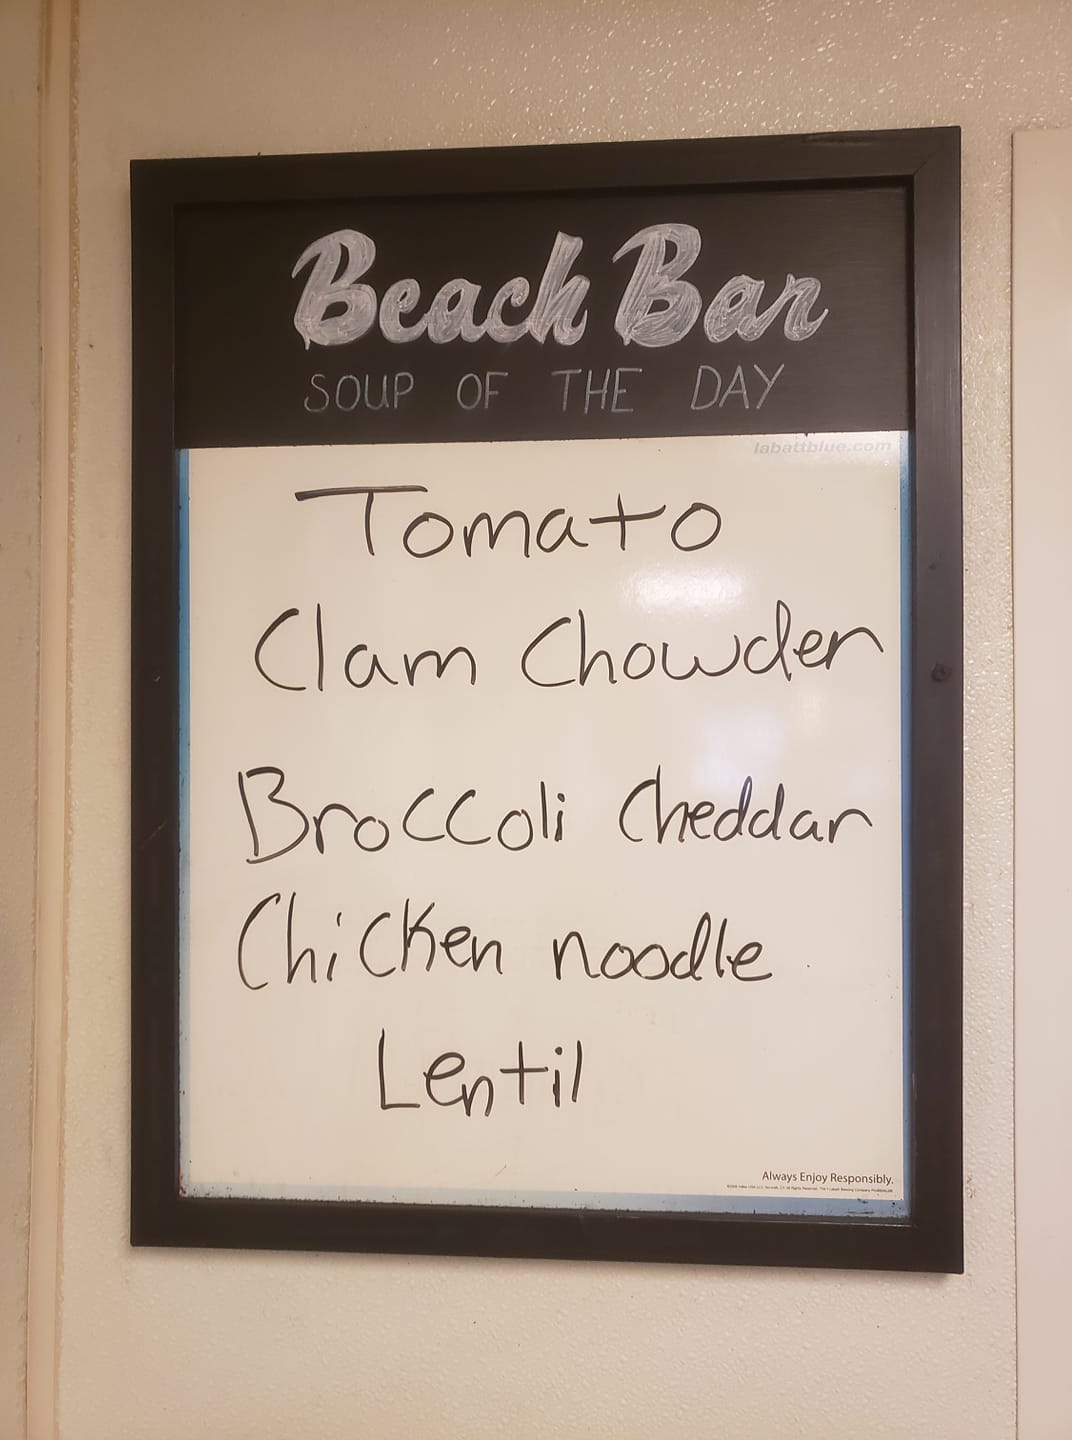 Beach Bar
SOUP OF THE DAY
labattblue.com
Tomato
Clam Chowder
Broccoli Cheddar
Chicken noodle
Lentil
Always Enjoy Responsibly.